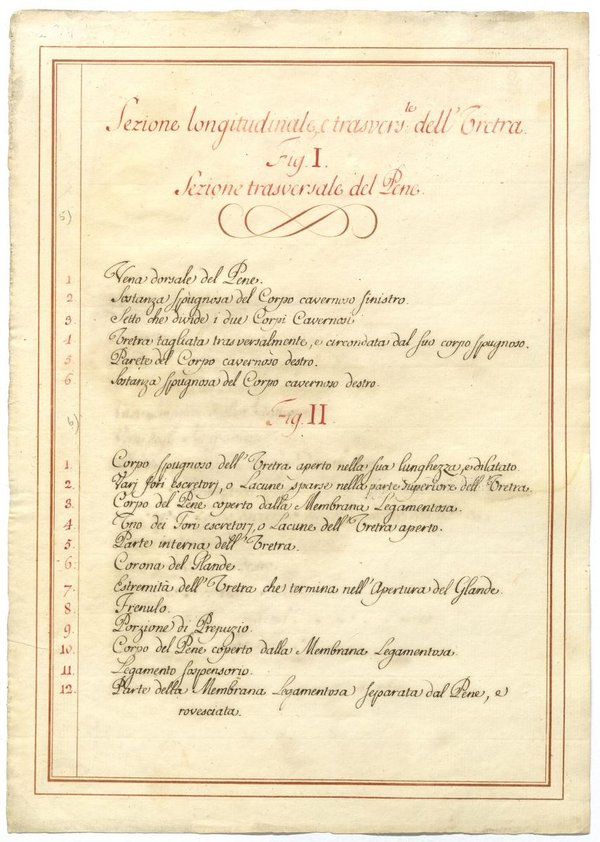 Sezione longitudinale, e trasvers:le dell' Uretra.
Fig. I.
Sezione trasversale del Pene.
5)
1 Vena dorsale del Pene.
2 Sostanza spugnosa del Corpo cavernoso sinistro.
3. Setto che divide i due Corpi Cavernosi
4 Uretra tagliata trasversalmente, e circondata dal suo corpo spugnoso.
5 Parete del Corpo cavernoso destro.
6. Sostanza spugnosa del Corpo cavernoso destro.
6)
Fig. II
1. Corpo spugnoso dell' Uretra aperto nella sua lunghezza, e dilatato.
2. Varj fori escretorj, o Lacune sparse nella parte superiore dell' Uretra.
3. Corpo del Pene coperto dalla Membrana Legamentosa.
4. Uno dei Fori escretorj, o Lacune dell' Uretra aperto.
5. Parte interna dell' Uretra.
6. Corona del Glande.
7. Estremità dell' Uretra che termina nell' Apertura del Glande.
8. Frenulo.
9. Porzione di Prepuzio.
10. Corpo del Pene coperto dalla Membrana Legamentosa.
11. Legamento sospensorio.
12. Parte della Membrana Legamentosa separata dal Pene, e
rovesciata.